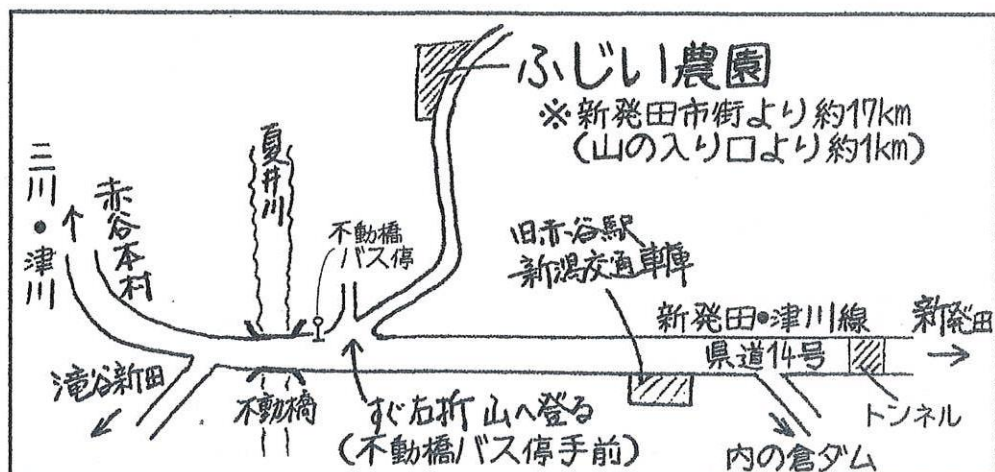 ふじい農園
※新発田市街より約17km
(山の入り口より約1km)
三川・津川
赤谷本村
夏井川
不動橋
バス停
旧赤谷駅
新潟交通車庫
新発田・津川線
県道14号
新発田
滝谷新田
不動橋
すぐ右折 山へ登る
(不動橋バス停手前)
内の倉ダム
トンネル